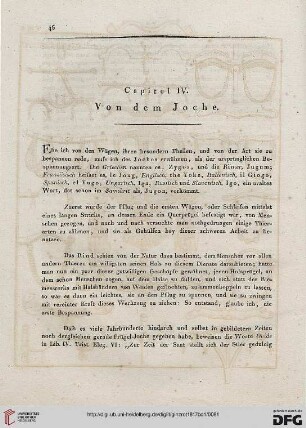 46
Capitel IV.
Von dem Joche.
Ehe ich von den Wägen, ihren besondern Theilen, und von der Art sie zu
bespannen rede, muſs ich des Joches erwähnen, als der ursprünglichen Be-
spannungsart. Die Griechen nannten es Zygos, und die Römer, Jugum;
Französisch heiſst es, le Joug, Englisch, the Yoke, Italienisch, il Giogo,
Spanisch, el Yugo, Ungarisch, Iga, Russisch und Slavonisch, Igo, ein uraltes
Wort, das schon im Sanskrit als, Jugon, vorkommt.
Zuerst wurde der Pflug und die ersten Wägen, oder Schleifen mittelst
eines langen Stricks, an dessen Ende ein Querprügel befestigt war, von Men-
schen gezogen, und nach und nach versuchte man nothgedrungen einige Thier-
arten zu zähmen, und sie als Gehülfen bey dieser schweren Arbeit zu be-
nutzen.
Das Rind, schon von der Natur dazu bestimmt, dem Menschen vor allen
andern Thieren am willigsten seinen Hals zu diesem Dienste darzubieten; hatte
man nun ein paar dieser gutwilligen Geschöpfe gewöhnt, jenen Holzprügel, an
dem schon Menschen zogen, auf dem Nacken zu tragen, und so gerade am Prü-
war es dann ein leichtes, sie an den Pflug zu spannen, und sie so zwingen mit
vereinter Kraft dieses Werkzeug zu ziehen: So entstand, glaube ich, die
erste Bespannung.
Daſs es viele Jahrhunderte hindurch und selbst in gebildetern Zeiten
noch dergleichen gerade Prügel-Joche gegeben habe, beweisen die Worte Ovids
in Lib. IV. Trist. Eleg. VI: „Zur Zeit der Saat stellt sich der Stier geduldig
http://digi.ub.uni-heidelberg.de/diglit/ginzrot1817bd1/0081